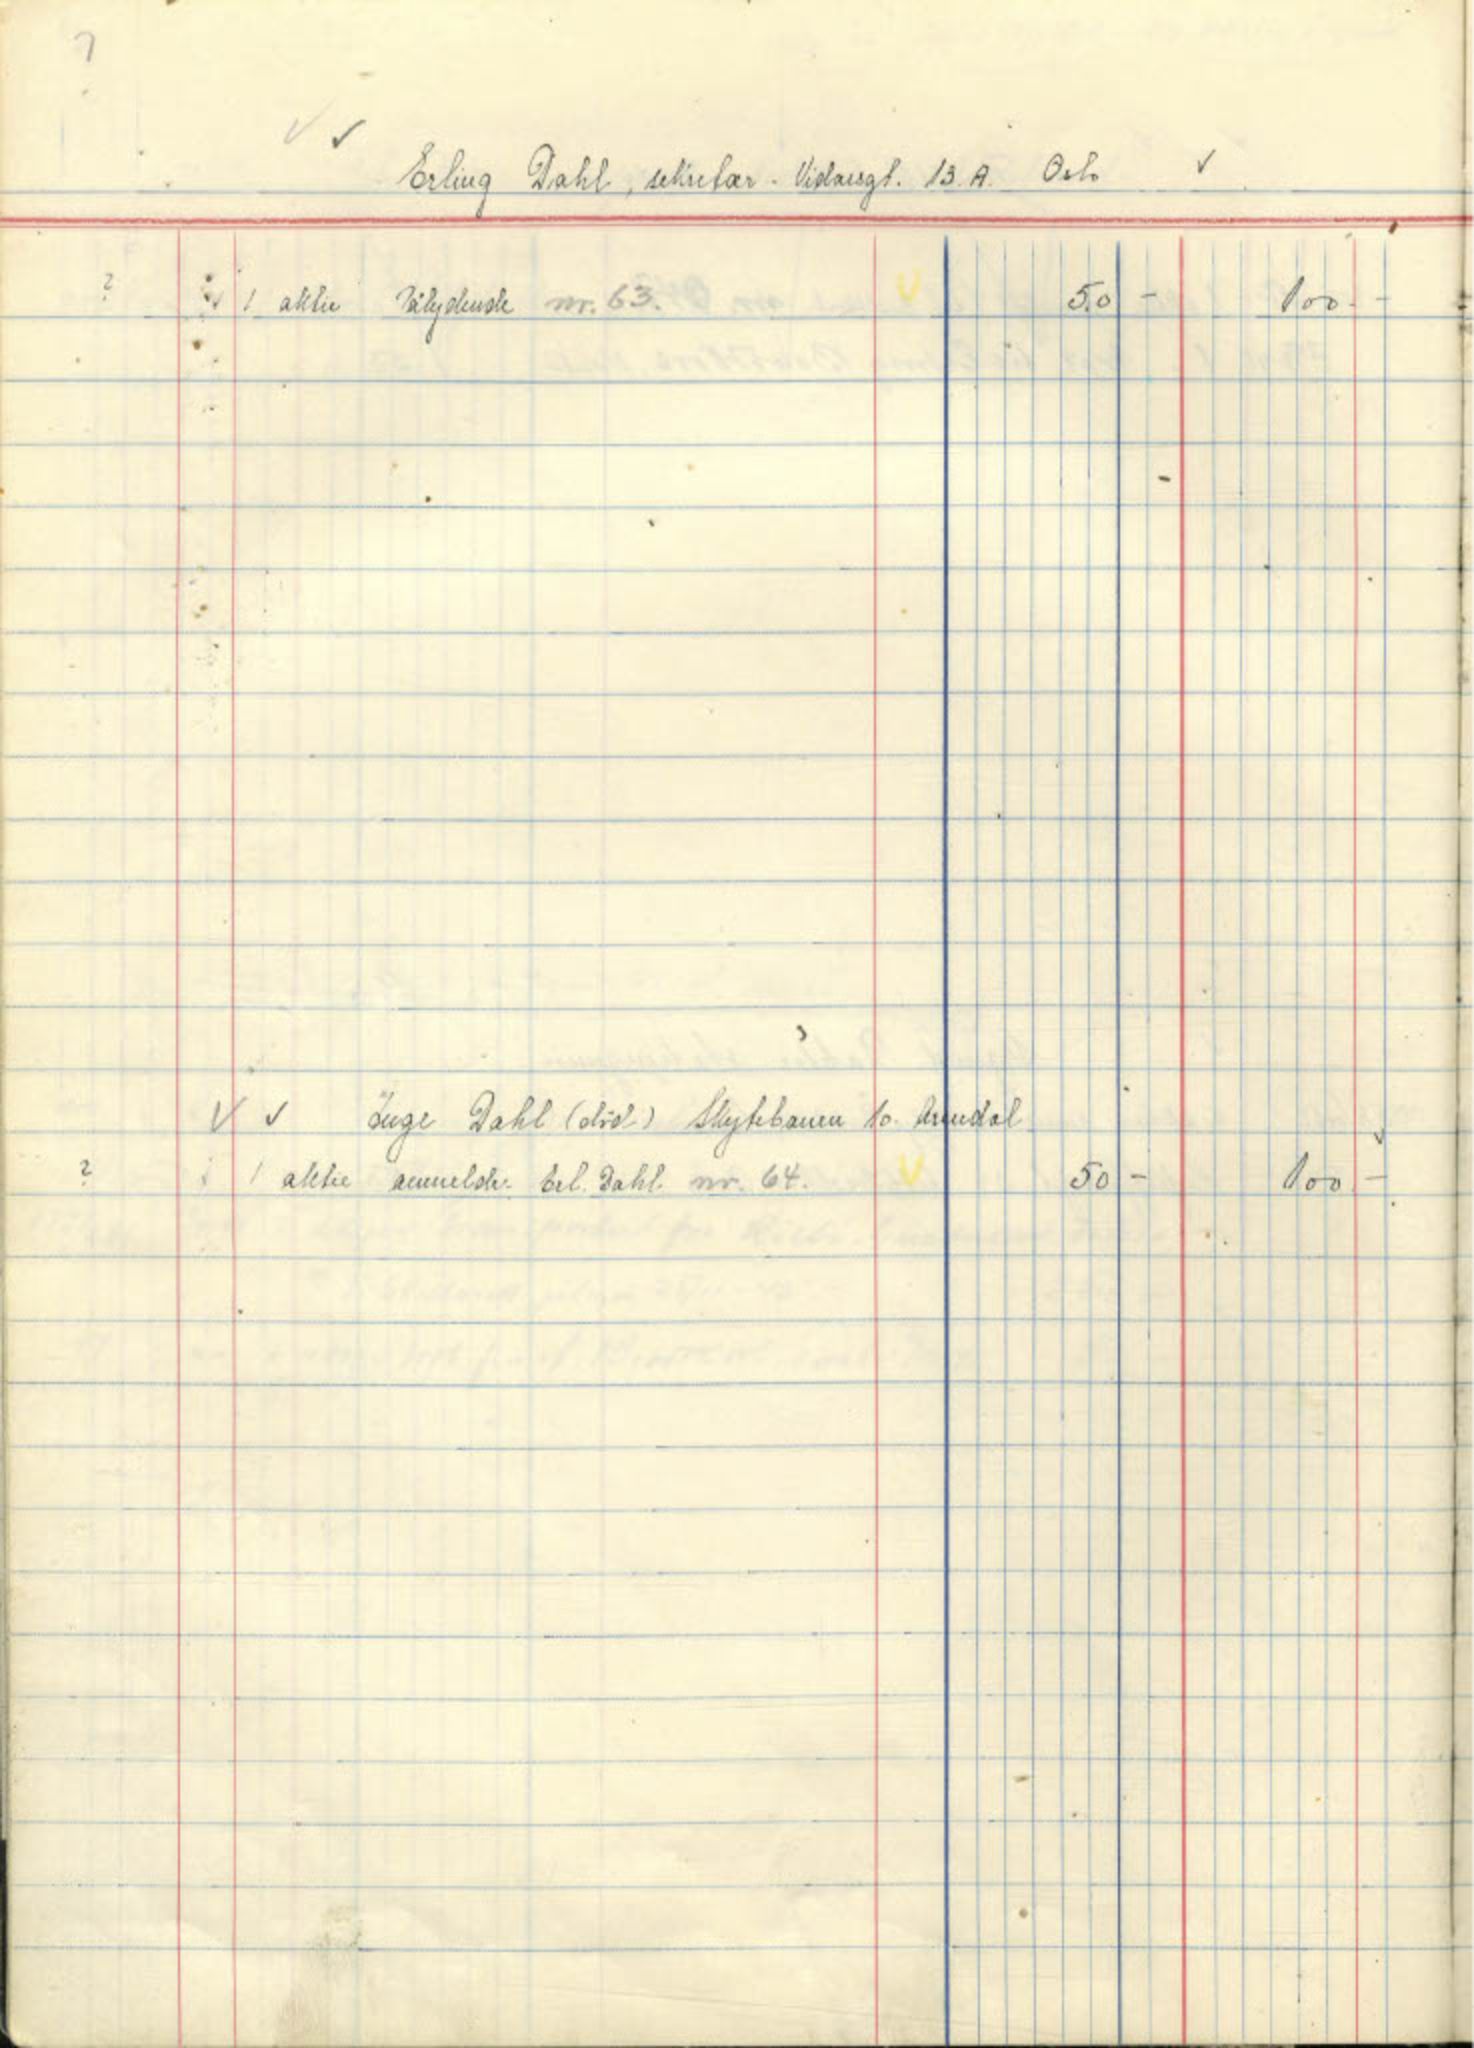 ?
✓ ✓
Erling Dahl, sekretær - Vidarsgt. 13 A. Oslo ✓
? ✓ 1 aktie pålydende nr. 63. ✓ 50 - 100 -
✓ ✓ Inge Dahl (död) Skytebanen 10. Arendal
? 1 aktie anmeldr. Erl. Dahl nr. 64. ✓ 50 - 100 -